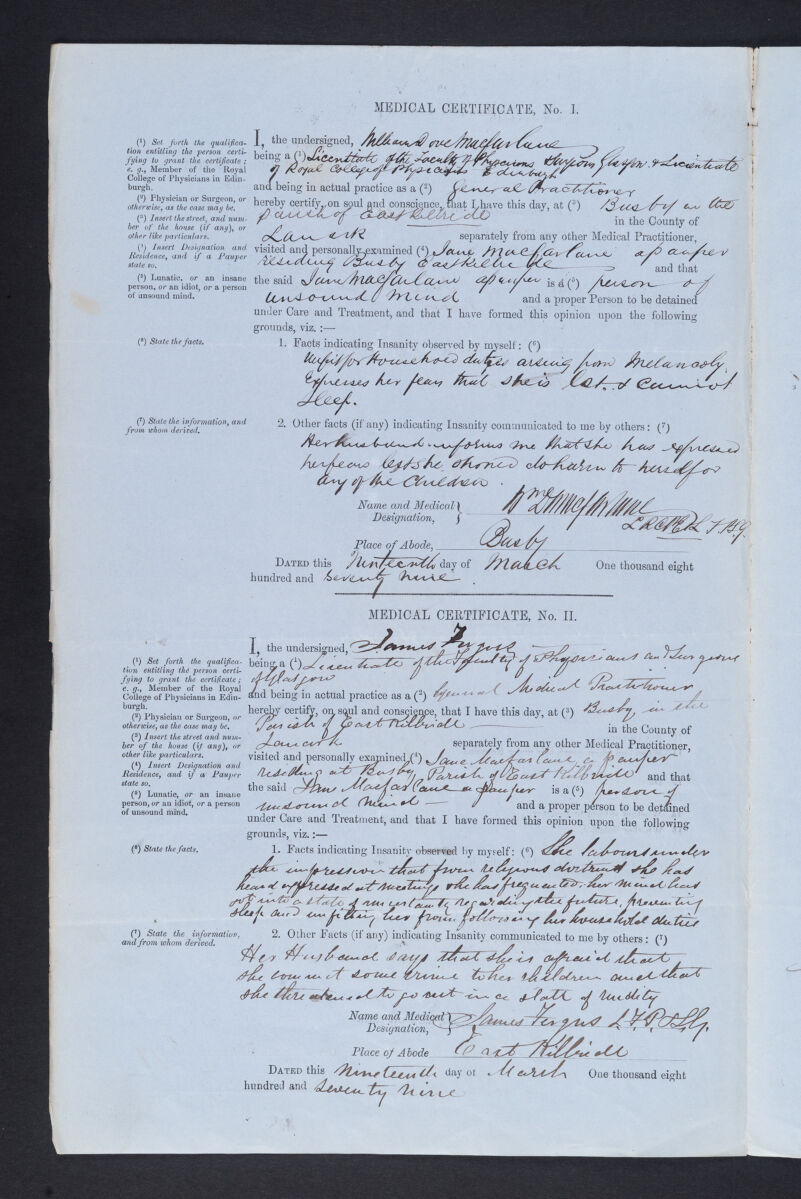 MEDICAL CERTIFICATE, No. I.
(1) Set forth the qualifica-
tion entitling the person certi-
fying to grant the certificate;
e. g., Member of the Royal
College of Physicians in Edin-
burgh.
(2) Physician or Surgeon, or
otherwise, as the case may be.
(3) Insert the street, and num-
ber of the house (if any), or
other like particulars.
(4) Insert Designation and
Residence, and if a Pauper
state so.
(5) Lunatic, or an insane
person, or an idiot, or a person
of unsound mind.
I, the undersigned, William Dove Macfarlane
being a (1) Licentiate of the Faculty of Physicians & Surgeons Glasgow & Licentiate
of Royal College of Physicians Edinburgh
and being in actual practice as a (2) General Practitioner
hereby certify, on soul and conscience, that I have this day, at (3) Busby in the
Parish of East Kilbride in the County of
Lanark separately from any other Medical Practitioner,
visited and personally examined (4) Jane Macfarlane a pauper
residing Busby East Kilbride and that
the said Jane Macfarlane a pauper is a (5) person of
unsound mind and a proper Person to be detained
under Care and Treatment, and that I have formed this opinion upon the following
grounds, viz. :—
(6) State the facts.
1. Facts indicating Insanity observed by myself: (6)
Unfit for Household duties arising from Melancoly.
Expresses her fears that she is lost. & cannot
sleep.
(7) State the information, and
from whom derived.
2. Other facts (if any) indicating Insanity communicated to me by others: (7)
Her Husband informs me that she has expressed
her fears lest she should do harm to herself or
any of the Children.
Name and Medical
Designation, Wm D Macfarlane
Place of Abode, Busby
DATED this Nineteenth day of March One thousand eight
hundred and Seventy nine.
MEDICAL CERTIFICATE, No. II.
(1) Set forth the qualifica-
tion entitling the person certi-
fying to grant the certificate;
e. g., Member of the Royal
College of Physicians in Edin-
burgh.
(2) Physician or Surgeon, or
otherwise, as the case may be.
(3) Insert the street and num-
ber of the house (if any), or
other like particulars.
(4) Insert Designation and
Residence, and if a Pauper
state so.
(5) Lunatic, or an insane
person, or an idiot, or a person
of unsound mind.
I, the undersigned, James Fergus
being a (1) Licentiate of the Faculty of Physicians and Surgeons
of Glasgow
and being in actual practice as a (2) General Medical Practitioner
hereby certify, on soul and conscience, that I have this day, at (3) Busby in the
Parish of East Kilbride in the County of
Lanark separately from any other Medical Practitioner,
visited and personally examined (4) Jane Macfarlane a pauper
residing at Busby Parish of East Kilbride and that
the said Jane Macfarlane a pauper is a (5) person of
unsound mind — and a proper person to be detained
under Care and Treatment, and that I have formed this opinion upon the following
grounds, viz. :—
(6) State the facts.
1. Facts indicating Insanity observed by myself: (6) She labours under
the impression that from religious doctrines she has
heard expressed at meetings she has frequented, her mind has
got into a state of uncertainty regarding the future, preventing
sleep and unfitting her from following her household duties
(7) State the information,
and from whom derived.
2. Other Facts (if any) indicating Insanity communicated to me by others: (7)
Her Husband says that she is afraid that
she commit some crime to her children and that
she threatened to go out in a state of nudity
Name and Medical
Designation, James Fergus L.F.P.S.G.
Place of Abode East Kilbride
DATED this Nineteenth day of March One thousand eight
hundred and Seventy Nine